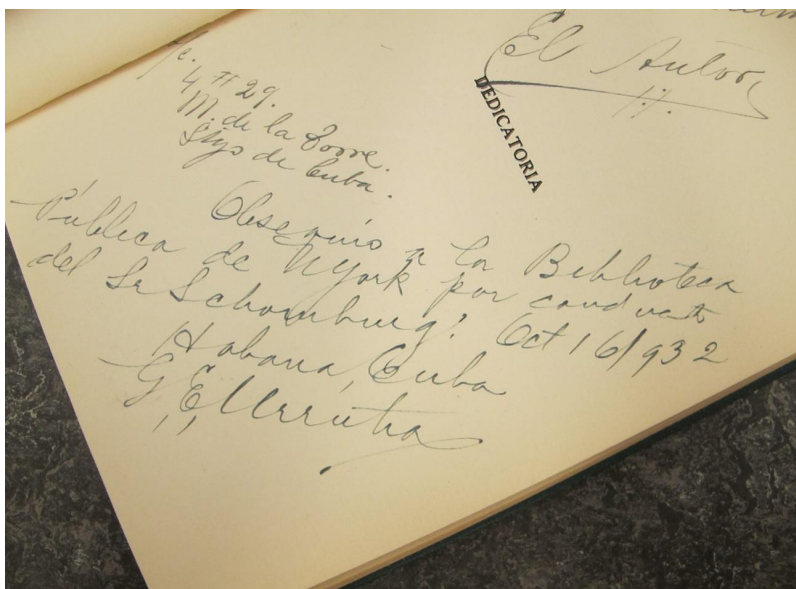 El Autor
DEDICATORIA
M. de la Torre.
Stgo de Cuba.
Obsequio a la Biblioteca
Pública de NYork por conducto
del Sr Schomburg. Oct 16/932
Habana, Cuba
G, E, Urrutia